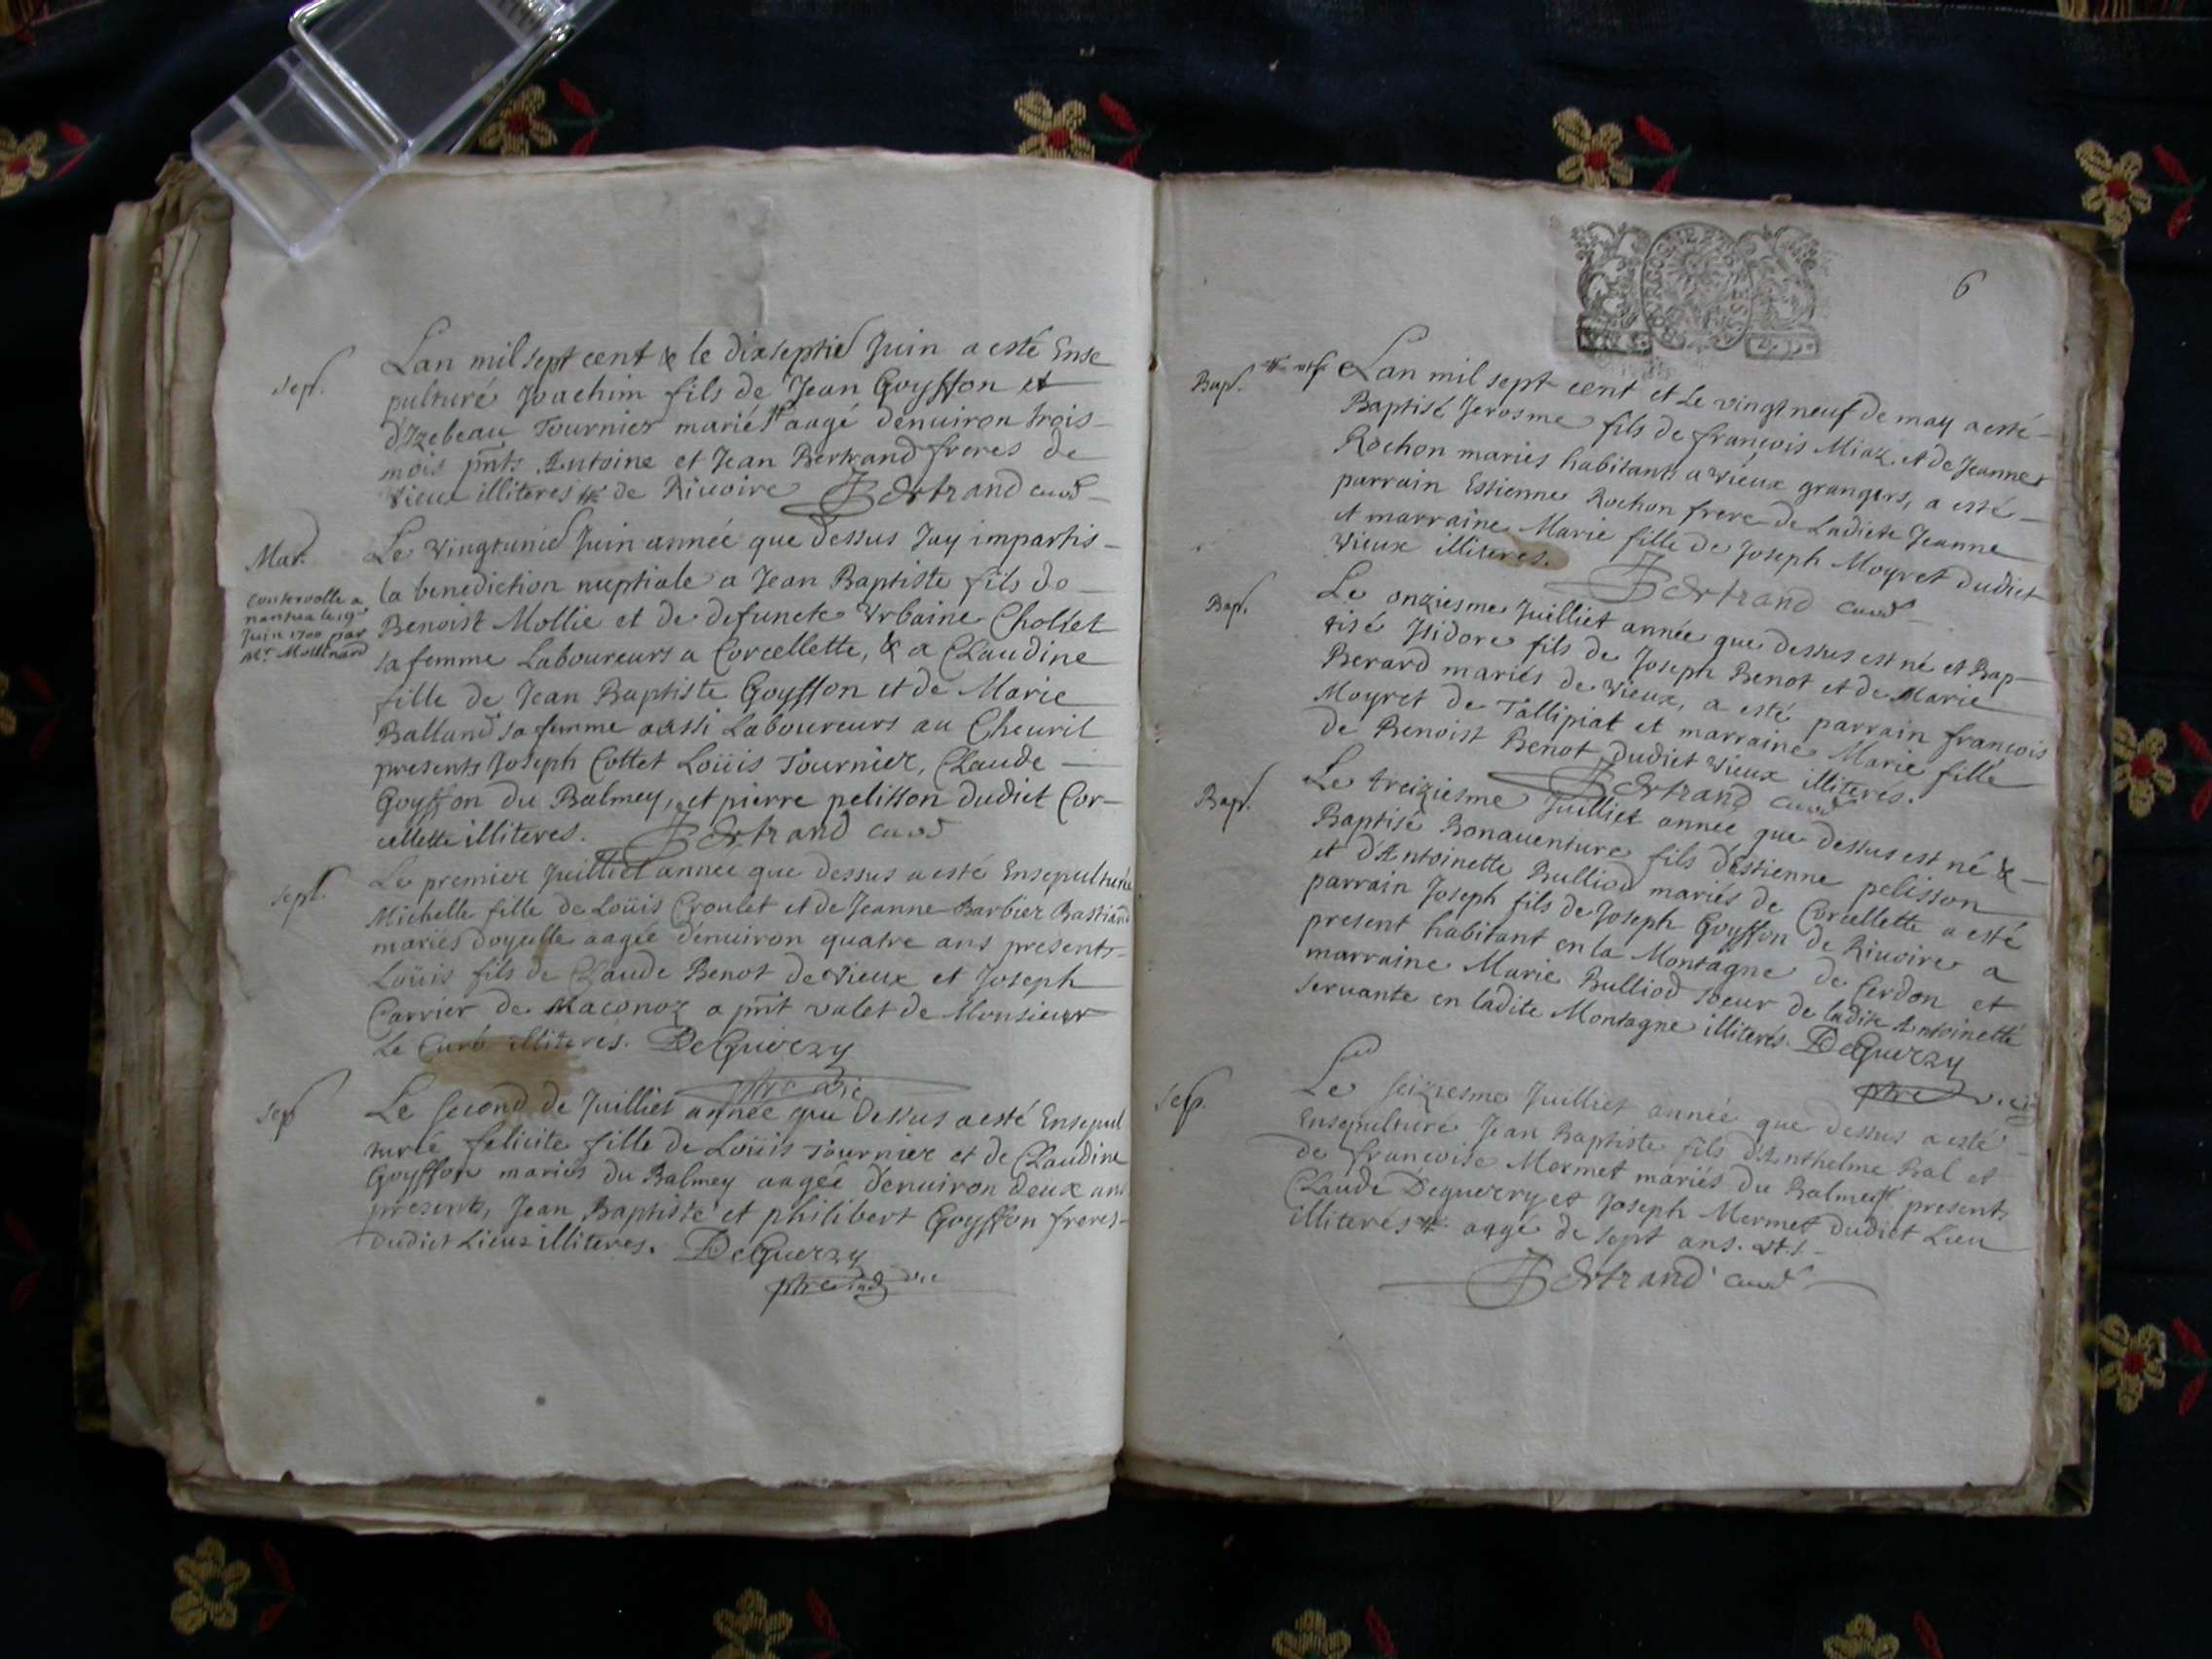 sep.
Lan mil sept cent & le dixseptie Juin a esté Ense
pulturé Joachim fils de Jean Goyffon et
d'Izebeau Tournier mariés aagé denuiron trois
mois pnts Antoine et Jean Bertrand freres de
vieux illiteres de Riuoire JBertrand curé
Mar.
Controolle a
nantua le 19e
Juin 1700 par
Mr. Mollinard
Le vingtunie Juin année que dessus Jay impartis
la benediction nuptiale a Jean Baptiste fils de
Benoist Mollie et de defuncte Vrbaine Chollet
sa femme Laboureurs a Corcellette, & a Claudine
fille de Jean Baptiste Goyffon et de Marie
Balland sa femme aussi Laboureurs au Cheuril
presents Joseph Cottet Loüis Tournier, Claude
Goyffon du Balmey, et pierre pelisson dudict Cor-
cellette illiteres. JBertrand curé
sept.
Le premier Juilliet annee que dessus a esté Ensepulturée
Michelle fille de Loüis Croulet et de Jeanne Barbier Bastiand
mariés doyelle aagée d'enuiron quatre ans presents
Loüis fils de Claude Benot de vieux et Joseph
Carrier de Maconoz a pnt valet de Monsieur
Le Curé illiterés. DeGuerry
ptre vic
sep
Le second de Juilliet année que Dessus a esté Ensepul
turée felicite fille de Loüis Tournier et de Claudine
Goyffon mariés du Balmey aagée d'enuiron deux ans
presents, Jean Baptiste et philibert Goyffon freres
dudict Lieux illiteres. DeGuerry
ptre vic
6
BOURGOGNE
Bap.
Lan mil sept cent et Le vingt neuf de may a esté
Baptisé Jerosme fils de françois Miaz et de Jeanne
Rochon mariés habitants a vieux grangers, a esté
parrain Estienne Rochon frere de Ladicte Jeanne
et marraine Marie fille de Joseph Moyret dudict
vieux illiteres.
JBertrand curé
Bap.
Le onziesme Juilliet année que dessus est né et Bap-
tisé Isidore fils de Joseph Benot et de Marie
Berard mariés de vieux, a esté parrain françois
Moyret de Tallipiat et marraine Marie fille
de Benoist Benot dudict vieux illiteres.
JBertrand curé
Bap.
Le treiziesme Juilliet annee que dessus est né &
Baptisé Bonauenture fils d'Estienne pelisson
et d'Antoinette Bulliod mariés de Corcellette a esté
parrain Joseph fils de Joseph Goyffon de Riuoire a
present habitant en la Montagne de Cerdon et
marraine Marie Bulliod soeur de ladite Antoinette
seruante en ladite Montagne illiterés. DeGuerry
ptre vic
Sep.
Le seiziesme Juilliet année que dessus a esté
Ensepulturé Jean Baptiste fils d'Anthelme Bal et
de françoise Mermet mariés du Balmey present
Claude Deguerry et Joseph Mermet dudict Lieu
illiterés aagé de sept ans.
JBertrand curé